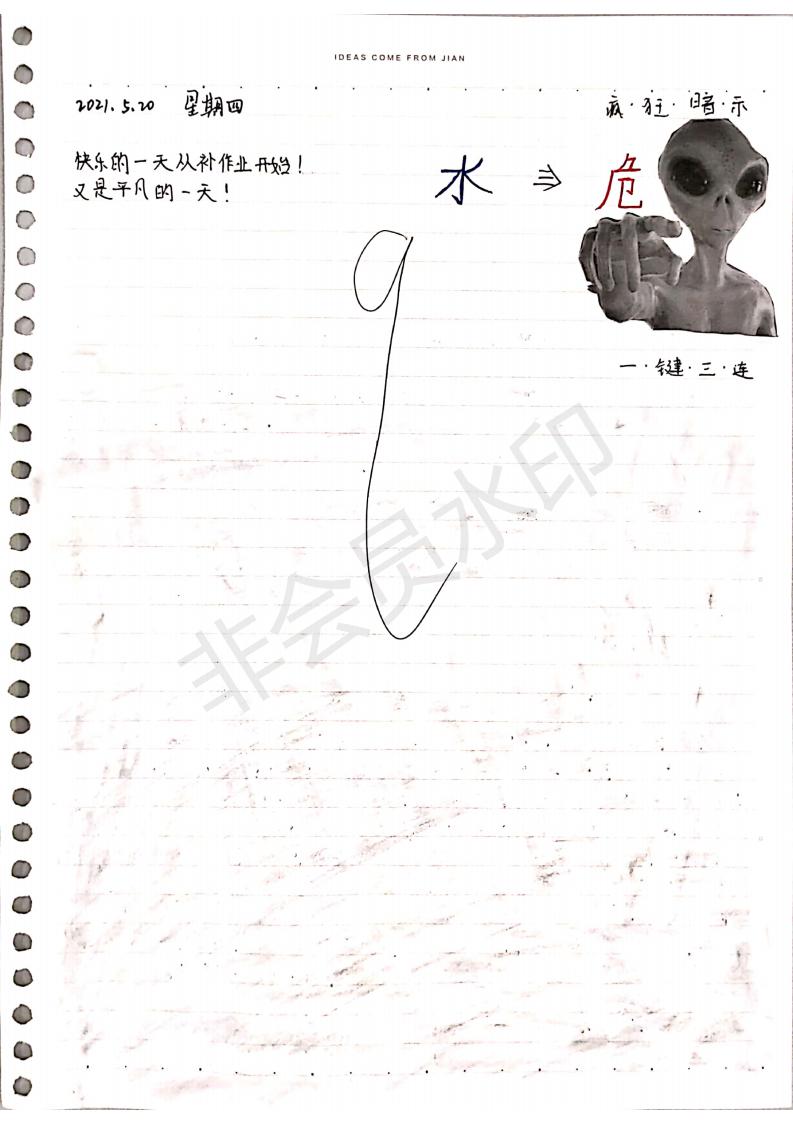 IDEAS COME FROM JIAN
2021.5.20 星期四
疯·狂·暗·示
快乐的一天从补作业开始!
又是平凡的一天!
水 ⇒ 危
一·键·三·连
非会员水印